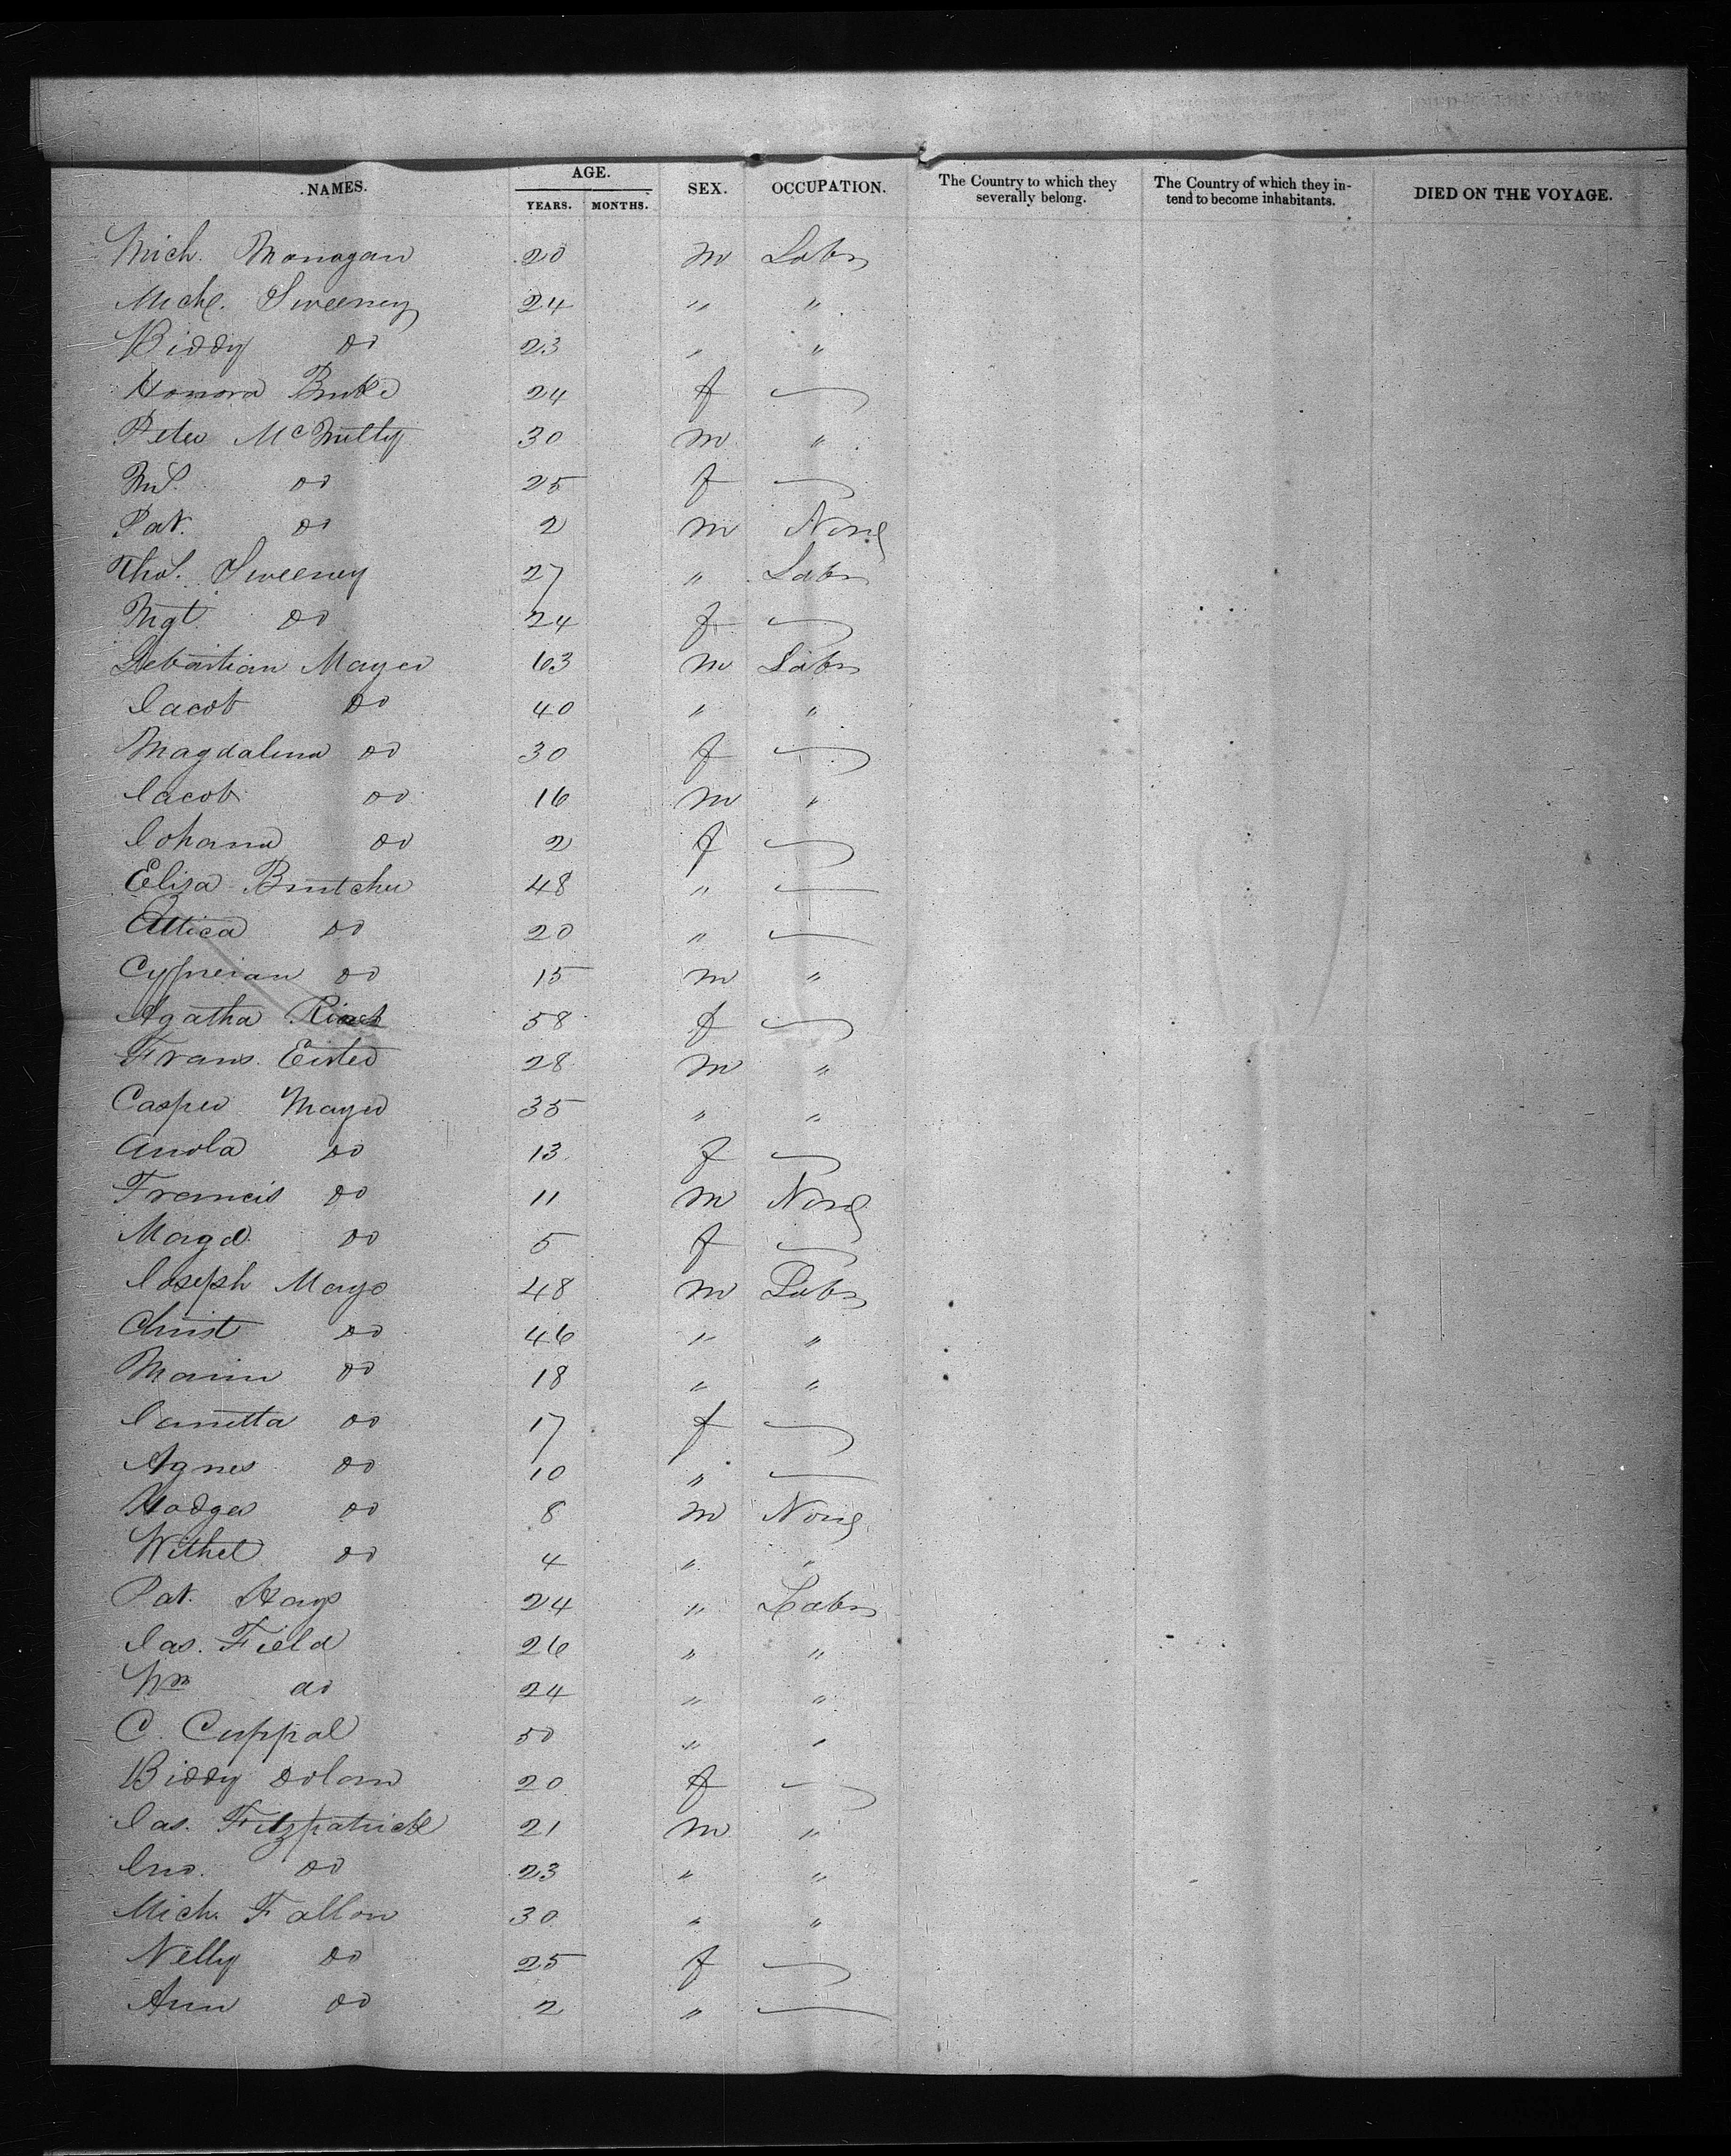 NAMES. AGE. SEX. OCCUPATION. The Country to which they severally belong. The Country of which they intend to become inhabitants. DIED ON THE VOYAGE.
YEARS. MONTHS.
Mich. Monagan 20 m Labr
Michl. Sweeney 24 " "
Biddy do 23 " "
Honora Burke 24 f
Peter McNulty 30 m "
do 25 f
Pat. do 2 m None
Thos. Sweeney 27 " Labr
Mgt. do 24 f
Sebastian Mayer 63 m Labr
Jacob do 40 " "
Magdalena do 30 f
Jacob do 16 m "
Johana do 2 f
Eliza 48 "
Attica do 20 "
Cyprian do 15 m "
Agatha 58 f
Frans. 28 m "
Casper Mayer 35 " "
do 13 f
Francis do 11 m None
Magd. do 5 f
Joseph Mayo 48 m Labr
Christ do 46 " "
do 18 " "
do 17 f
Agnes do 10 "
do 8 m None
Withel do 4 " "
Pat. Hays 24 " Labr
Jas. Field 26 " "
Wm do 24 " "
C. Cuppal 50 " "
Biddy Dolan 20 f
Jas. Fitzpatrick 21 m "
Jno. do 23 " "
Mich. Fallon 30 " "
Nelly do 25 f
Ann do 2 "